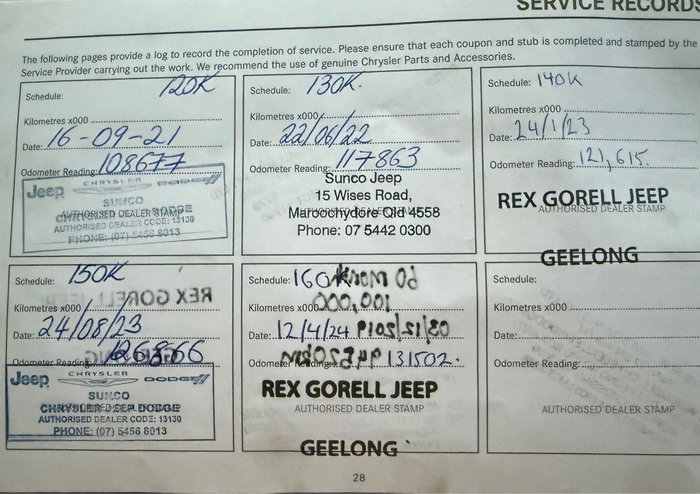 SERVICE RECORDS
The following pages provide a log to record the completion of service. Please ensure that each coupon and stub is completed and stamped by the
Service Provider carrying out the work. We recommend the use of genuine Chrysler Parts and Accessories.
Schedule: 120K
Kilometres x000
Date: 16-09-21
Odometer Reading: 108677
Jeep CHRYSLER DODGE
SUNCO
AUTHORISED DEALER STAMP
AUTHORISED DEALER CODE: 13130
PHONE: (07) 5456 8013
Schedule: 130K.
Kilometres x000
Date: 22/06/22
Odometer Reading: 117863
Sunco Jeep
15 Wises Road,
Maroochydore Qld 4558
Phone: 07 5442 0300
Schedule: 140K
Kilometres x000
Date: 24/1/23
Odometer Reading: 121,615.
REX GORELL JEEP
AUTHORISED DEALER STAMP
GEELONG
Schedule: 150K
Kilometres x000
Date: 24/08/23
Odometer Reading: 126866
Jeep CHRYSLER DODGE
SUNCO
CHRYSLER JEEP DODGE
AUTHORISED DEALER CODE: 13130
PHONE: (07) 5456 8013
Schedule: 160K
Kilometres x000
Date: 12/4/24
Odometer Reading: 131502.
REX GORELL JEEP
AUTHORISED DEALER STAMP
GEELONG
Schedule:
Kilometres x000
Date:
Odometer Reading:
AUTHORISED DEALER STAMP
28